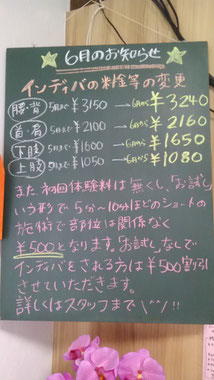 6月のお知らせ
インディバの料金等の変更
腰・背 5月まで ¥3150 → 6月から ¥3240
首・肩 5月まで ¥2100 → 6月から ¥2160
下肢 5月まで ¥1600 → 6月から ¥1650
上肢 5月まで ¥1050 → 6月から ¥1080
また初回体験料は無くし、「お試し」
いう形で5分〜10分ほどのショートの
施術で部位は関係なく
¥500となります。お試しなしで
インディバをされる方は¥500割引
させていただきます。
詳しくはスタッフまで\^^/!!